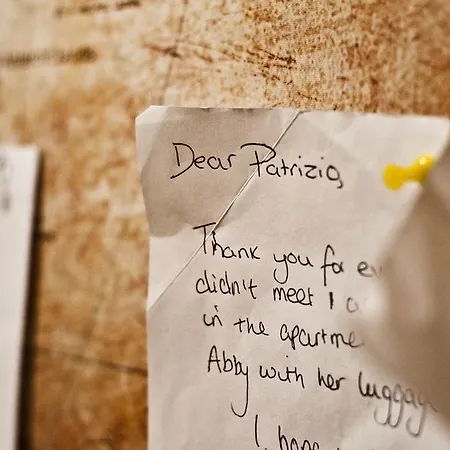 Dear Patrizia,
Thank you for e
didn't meet I
in the apartme
Abby with her luggag
I hope